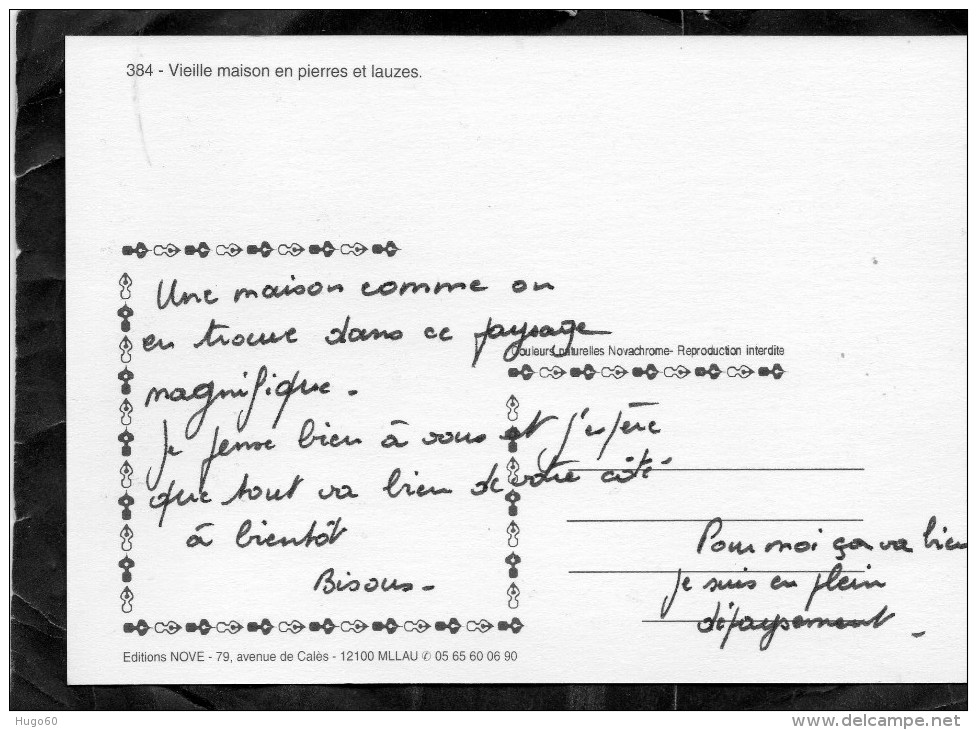 384 - Vieille maison en pierres et lauzes.
Une maison comme on
en trouve dans ce paysage
magnifique.
Je pense bien à vous et j'espère
que tout va bien de votre côté
à bientôt
Bisous.
Couleurs naturelles Novachrome- Reproduction interdite
Pour moi ça va bien
je suis en plein
dépaysement.
Editions NOVE - 79, avenue de Calès - 12100 MLLAU ✆ 05 65 60 06 90
Hugo60
www.delcampe.net